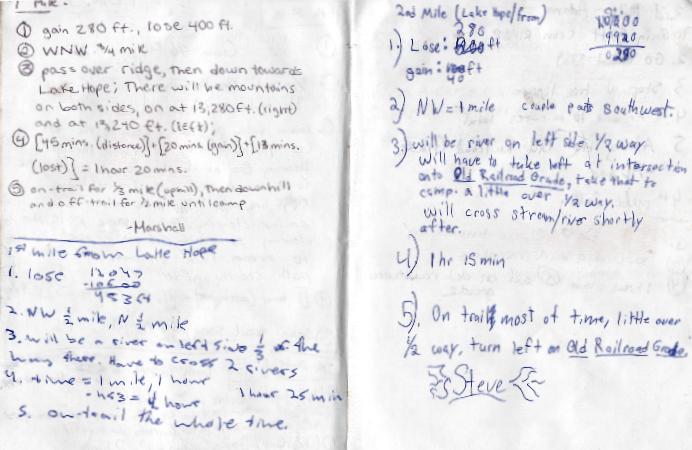 1 Mile.
① gain 280 ft., lose 400 ft.
② WNW 3/4 mile
③ pass over ridge, then down towards
Lake Hope; There will be mountains
on both sides, on at 13,280 ft. (right)
and at 13,240 ft. (left);
④ [45 mins. (distance)]+[20 mins. (gain)]+[13 mins.
(lost)] = 1 hour 20 mins.
⑤ on-trail for 1/3 mile (uphill), then downhill
and off-trail for 1/2 mile until camp
-Marshall
1st mile from Lake Hope
1. lose
2. NW 1/2 mile, N 1/2 mile
3. will be a river on left side 1/3 of the
way there. Have to cross 2 rivers
4. time = 1 mile, 1 hour
1 hour 25 min
5. on-trail the whole time.
2nd Mile (Lake Hope/from)
280
1.) Lose: ft
gain: ft
40
10200
9920
0280
2) NW = 1 mile couple southwest.
3.) will be river on left side 1/2 way.
will have to take left at intersection
onto Old Railroad Grade, take that to
camp. a little over 1/2 way.
will cross stream/river shortly
after.
4) 1 hr 15 min
5). On trail most of time, little over
1/2 way, turn left on Old Railroad Grade.
Steve